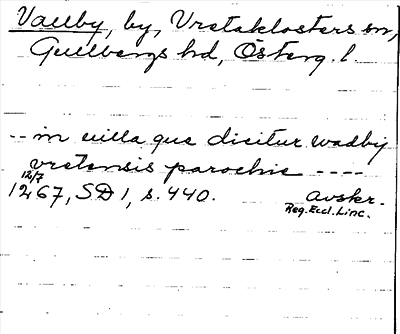 Valby, by, Vretaklosters sn,
Gullbergs hd, Österg. l.
-- in uilla que dicitur wadby
vretensis parochie ----
12/7
1267, SD 1, s. 440. Avskr.
Reg. Eccl. Linc.